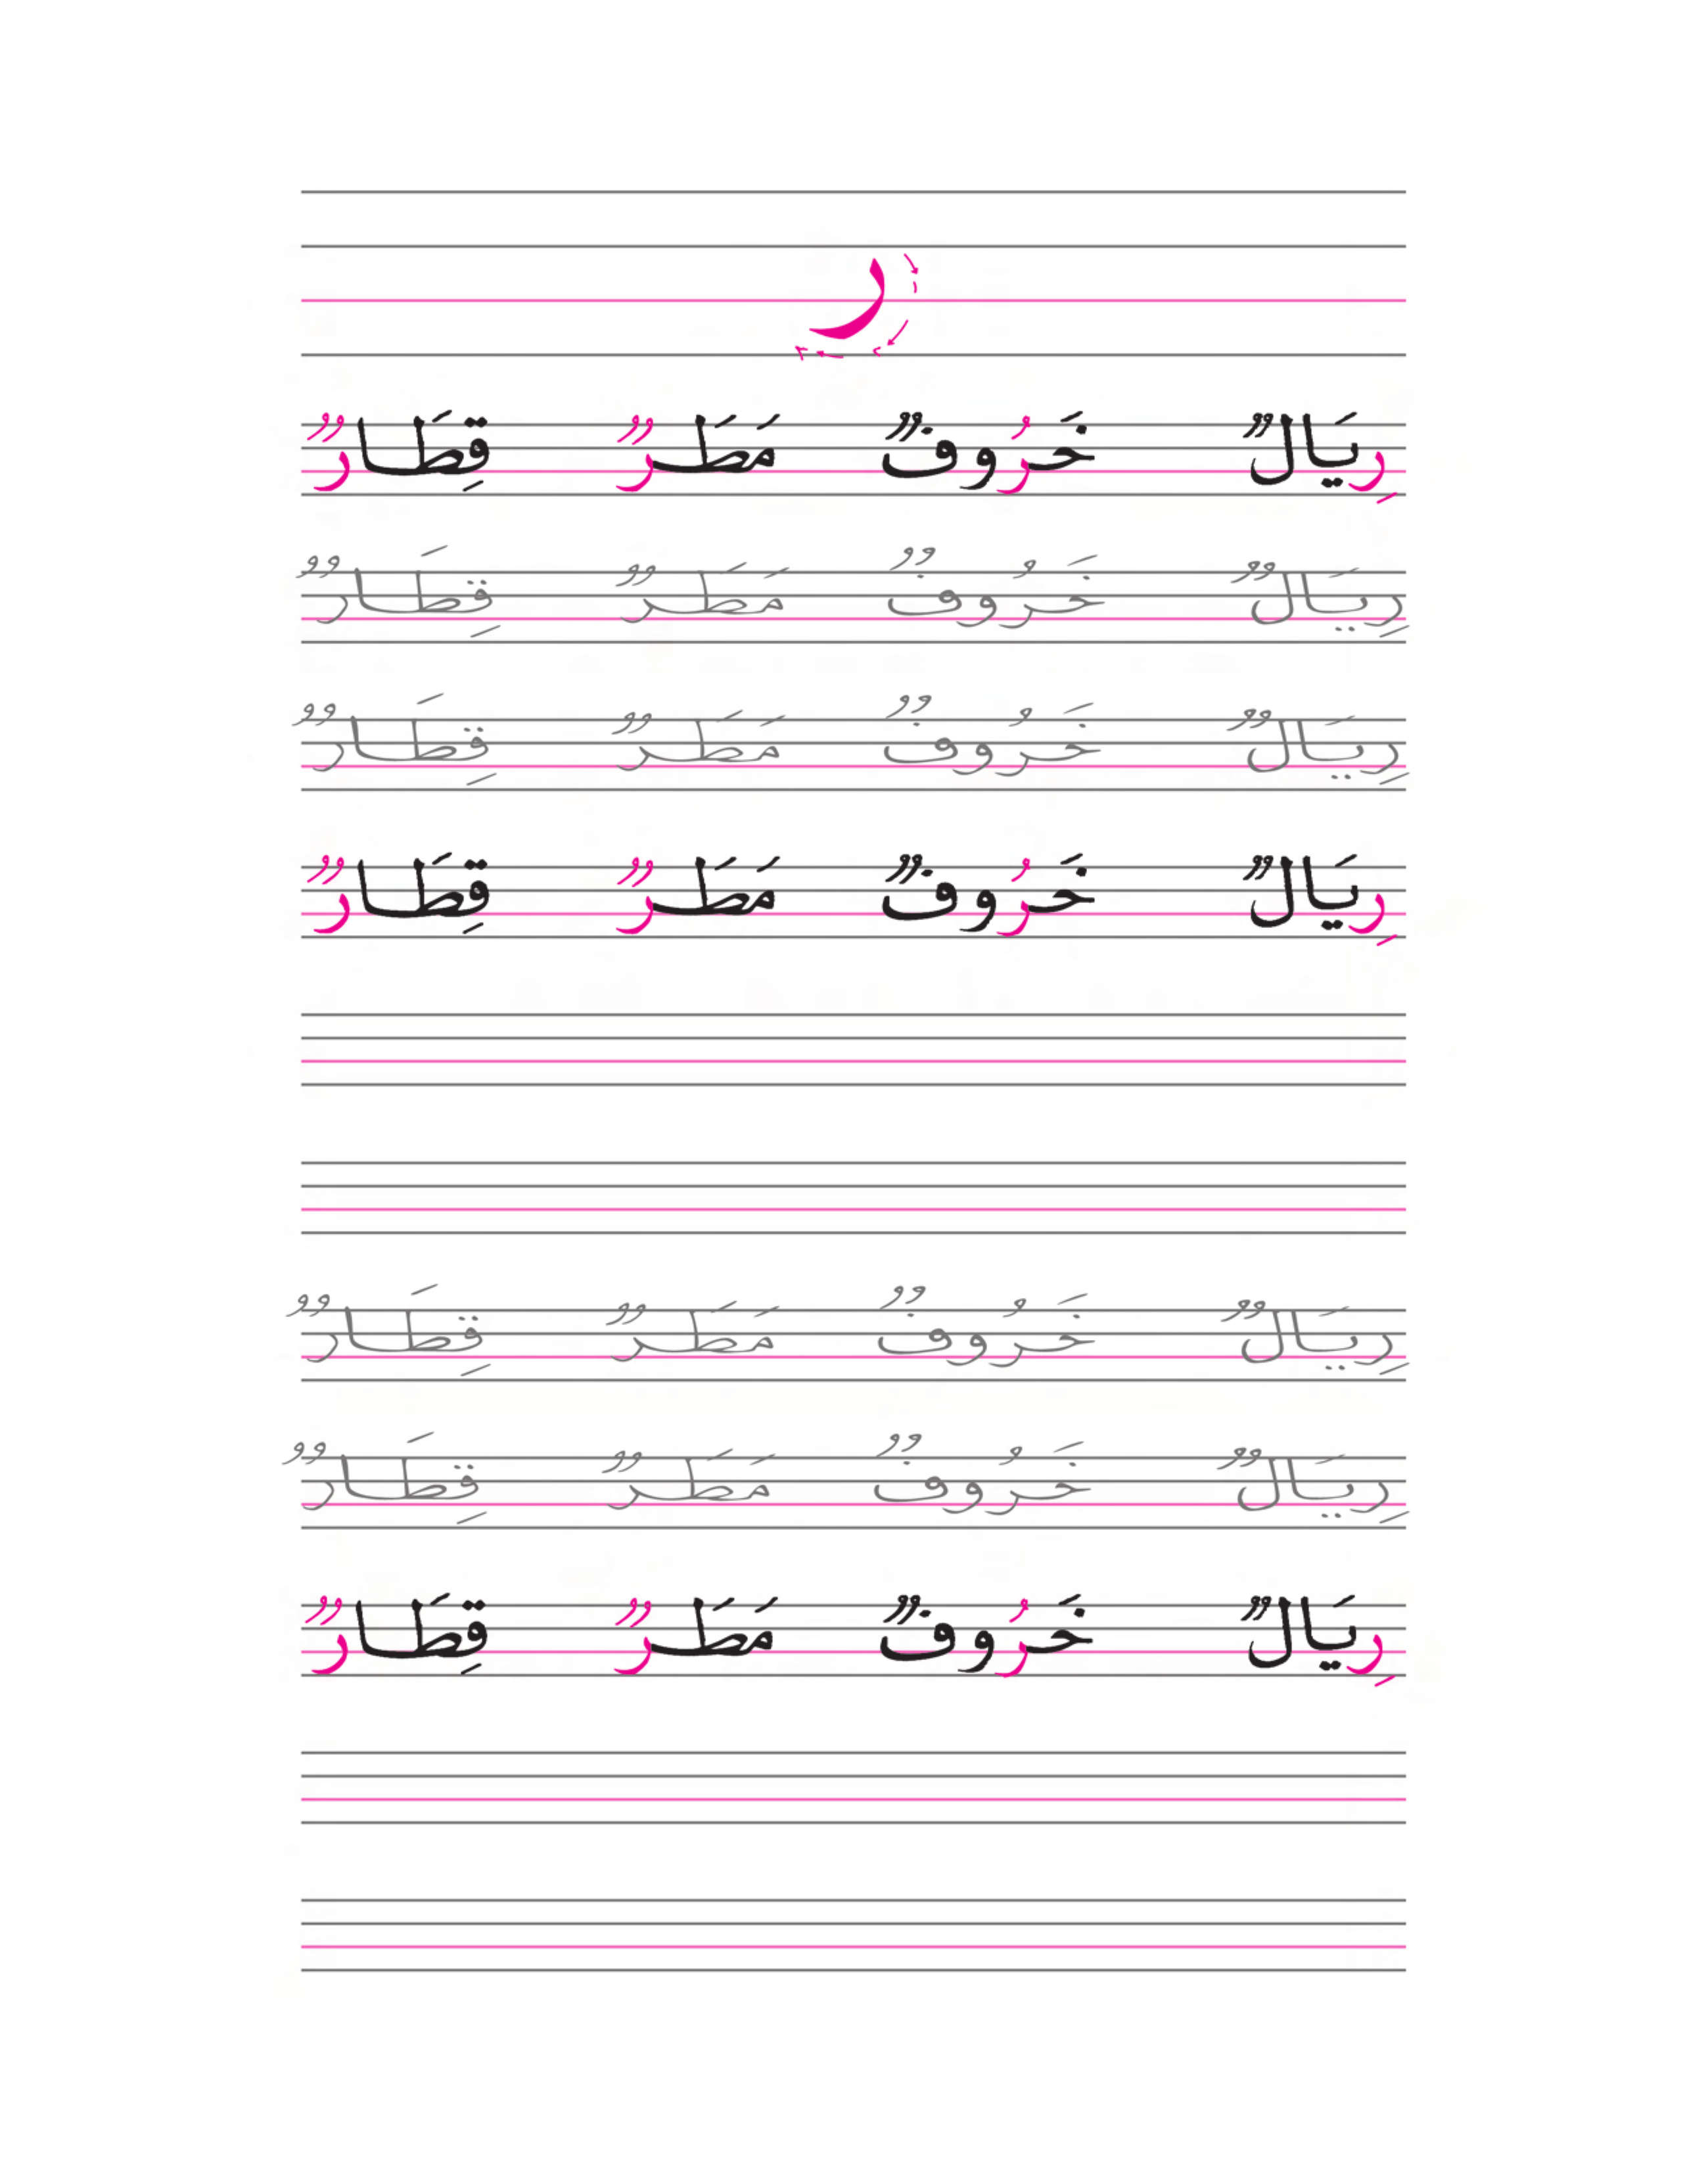 ر
رِيَالٌ خَرُوفٌ مَطَرٌ قِطَارٌ
رِيَالٌ خَرُوفٌ مَطَرٌ قِطَارٌ
رِيَالٌ خَرُوفٌ مَطَرٌ قِطَارٌ
رِيَالٌ خَرُوفٌ مَطَرٌ قِطَارٌ
رِيَالٌ خَرُوفٌ مَطَرٌ قِطَارٌ
رِيَالٌ خَرُوفٌ مَطَرٌ قِطَارٌ
رِيَالٌ خَرُوفٌ مَطَرٌ قِطَارٌ